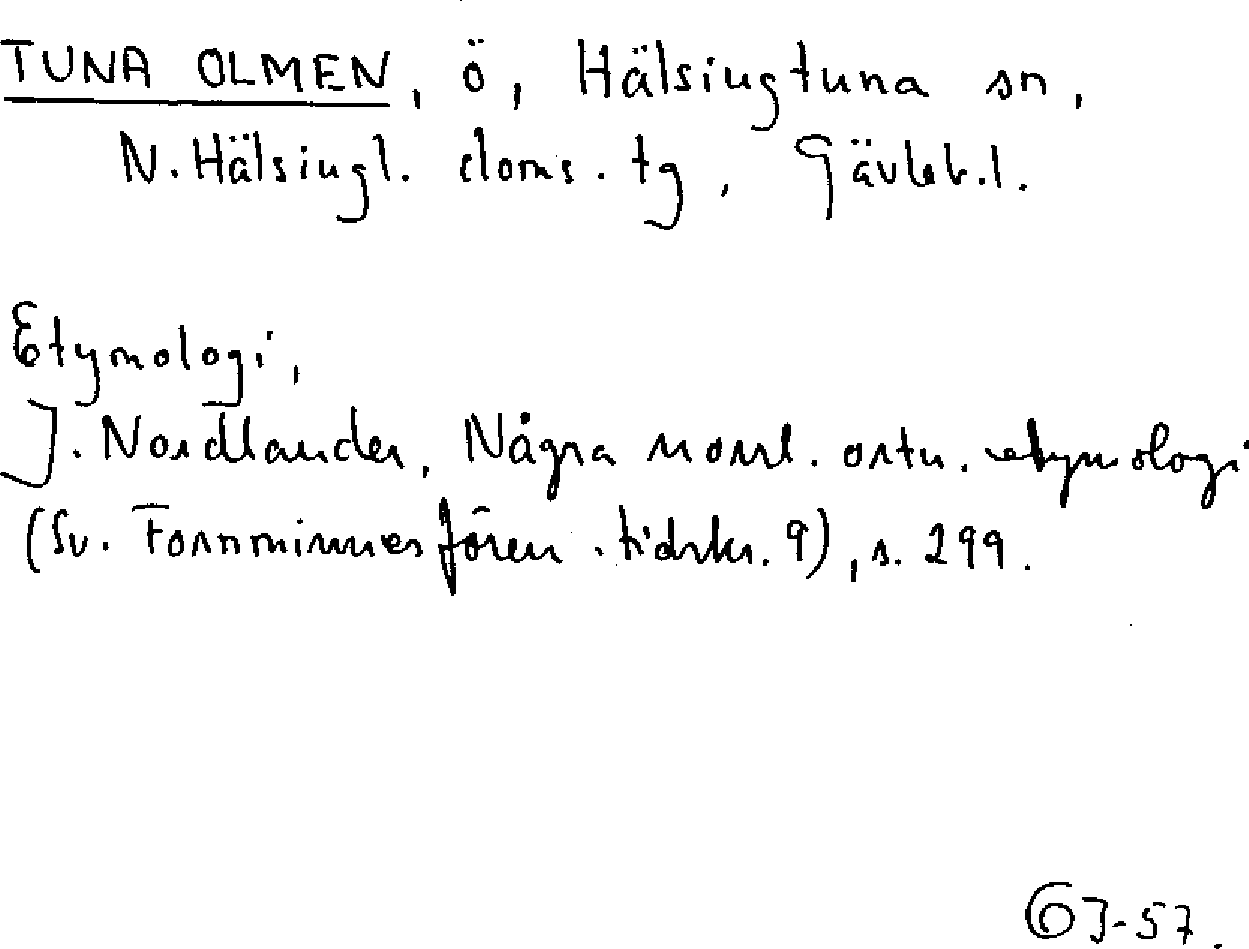 TUNA OLMEN, ö, Hälsingtuna sn,
N. Hälsingl. doms. tg, Gävleb. l.
Etymologi,
J. Nordlander, Några norrl. ortn. etymologi
(Sv. Fornminnesfören. tidskr. 9), s. 299.
GJ-57.